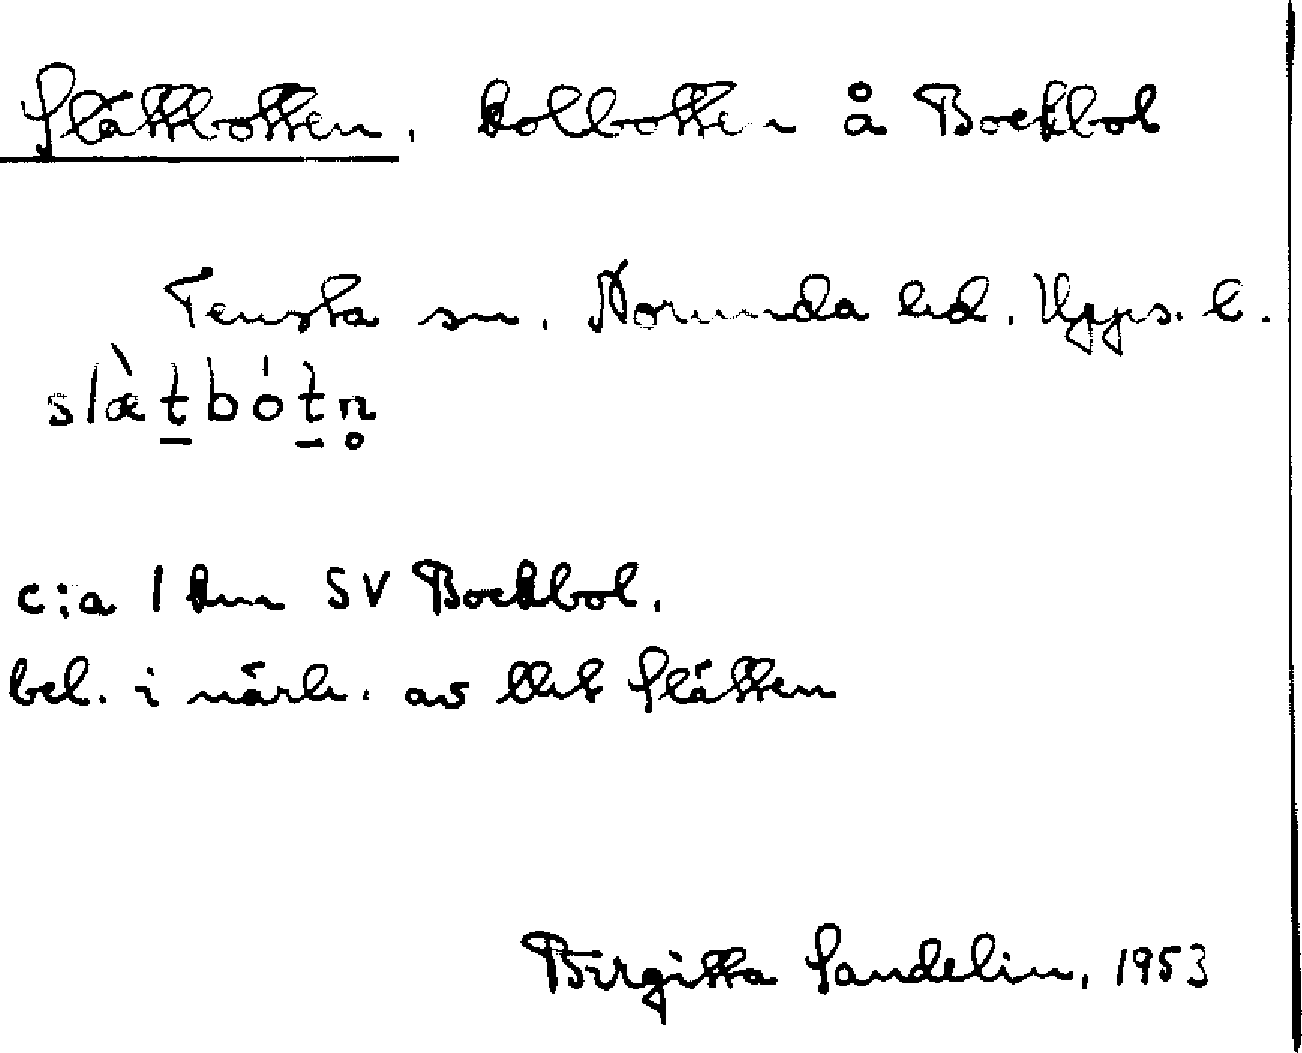 Slättbotten, kolbotten å Bockbol
Tensta sn. Norunda hd. Upps. l.
slæ̀tbótn̥
c:a 1 km SV Bockbol.
bel. i närh. av Slätten
Birgitta Sandelin, 1953